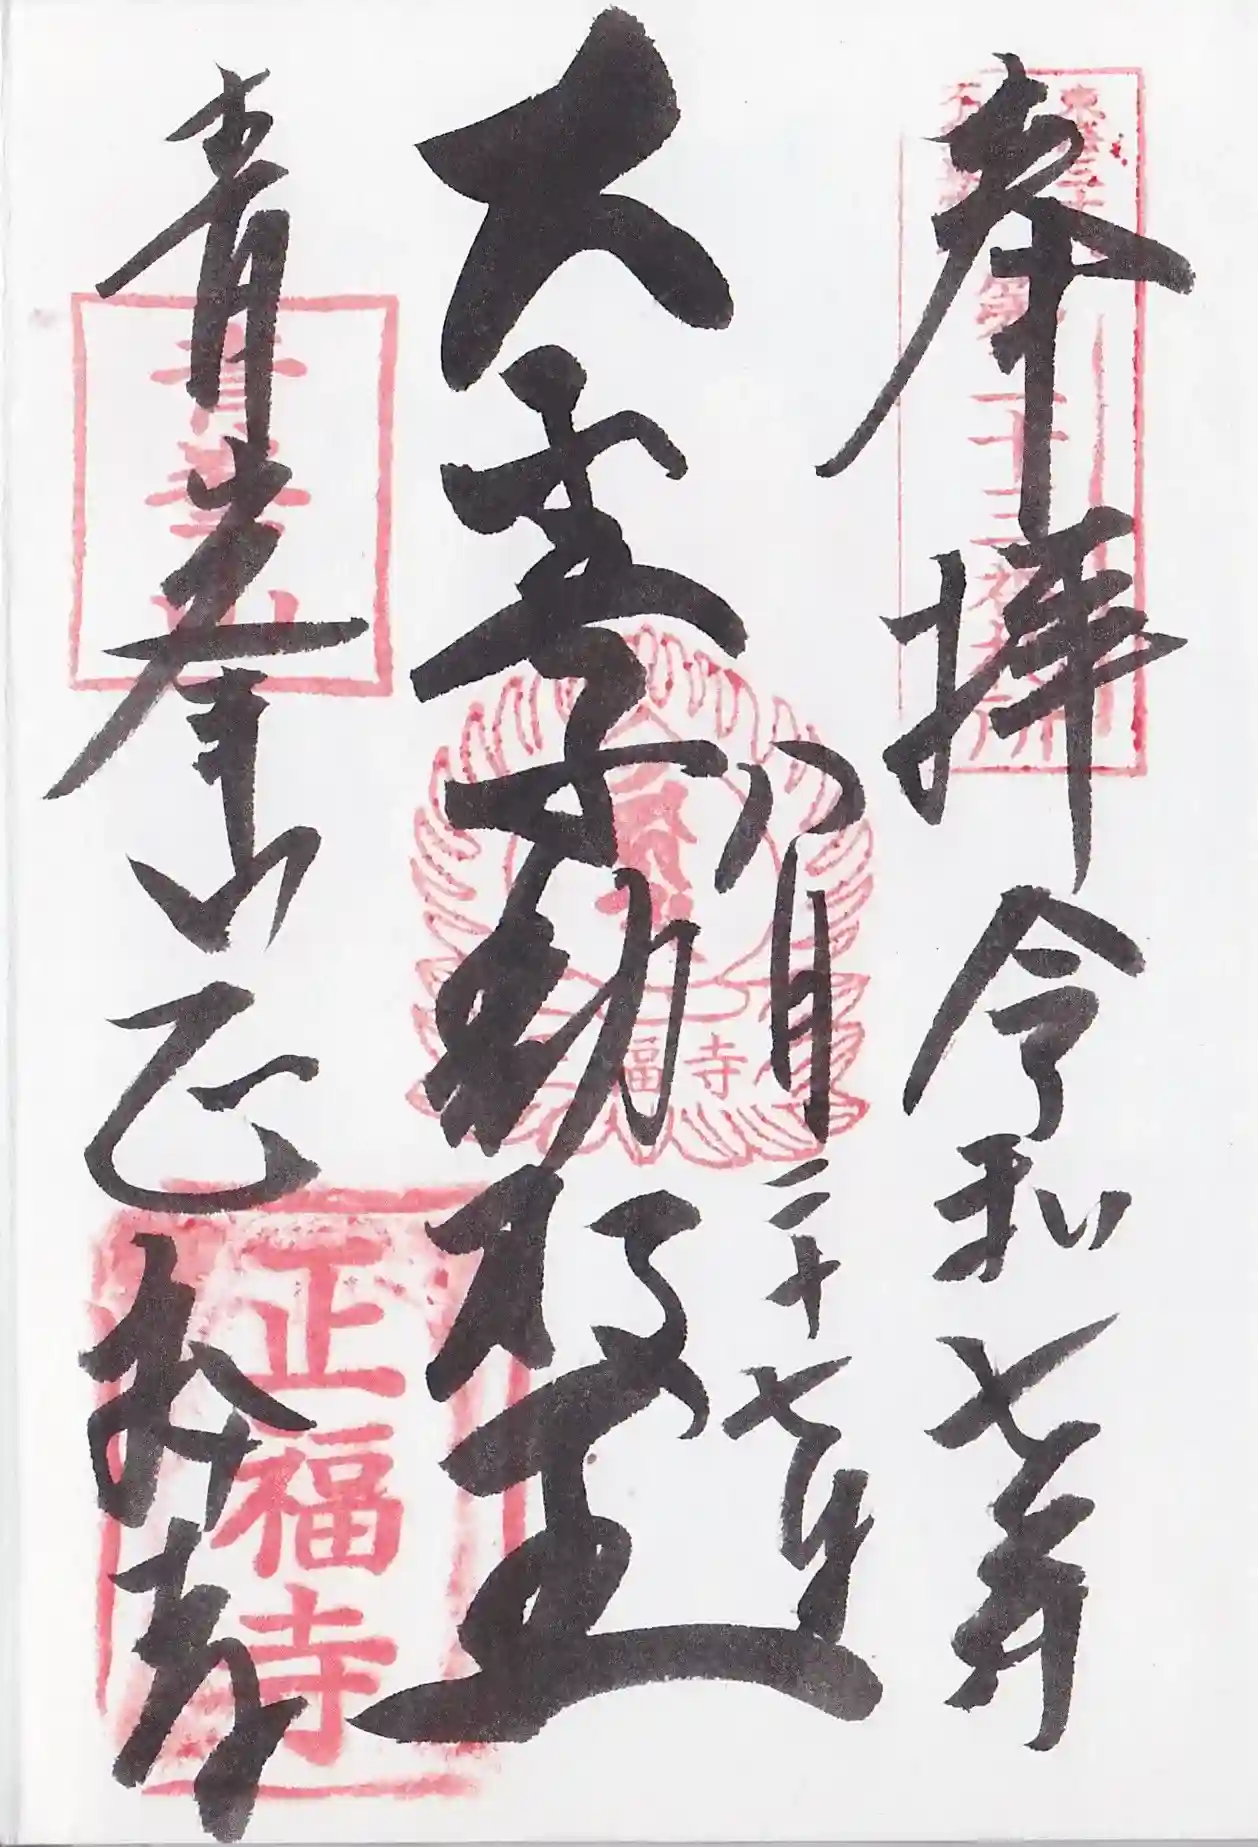 奉拝 令和七年
八月二十七日
大聖不動明王
青峯山 正福寺
青峯山
正福寺